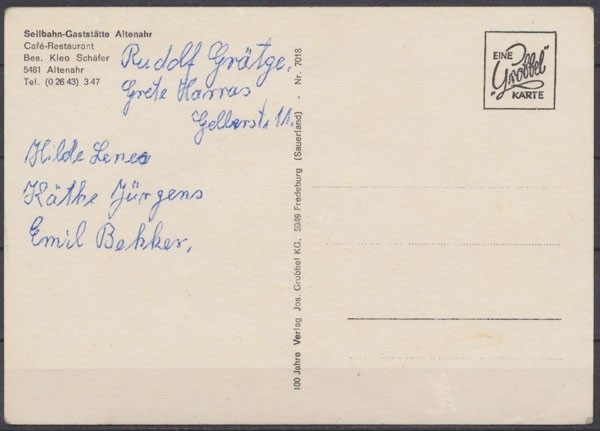 Seilbahn-Gaststätte Altenahr
Café-Restaurant
Bes. Kleo Schäfer
5481 Altenahr
Tel. (0 26 43) 3 47
Rudolf Grätge,
Grete Harras
Gellerstr. 11.
Hilde Lenes
Käthe Jürgens
Emil Bekker,
100 Jahre Verlag Jos. Grobbel KG, 5949 Fredeburg (Sauerland) · Nr. 7018
EINE
"Grobbel"
KARTE